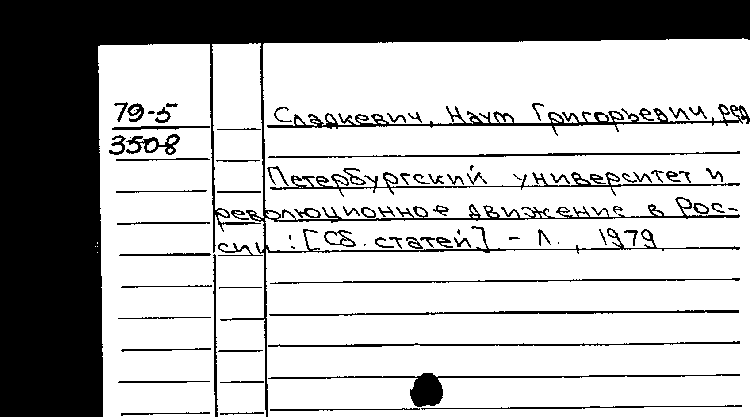 79-5 Сладкевич, Наум Григорьевич, ред
3508
Петербургский университет и
революционное движение в Рос-
сии : [Сб. статей] - Л., 1979